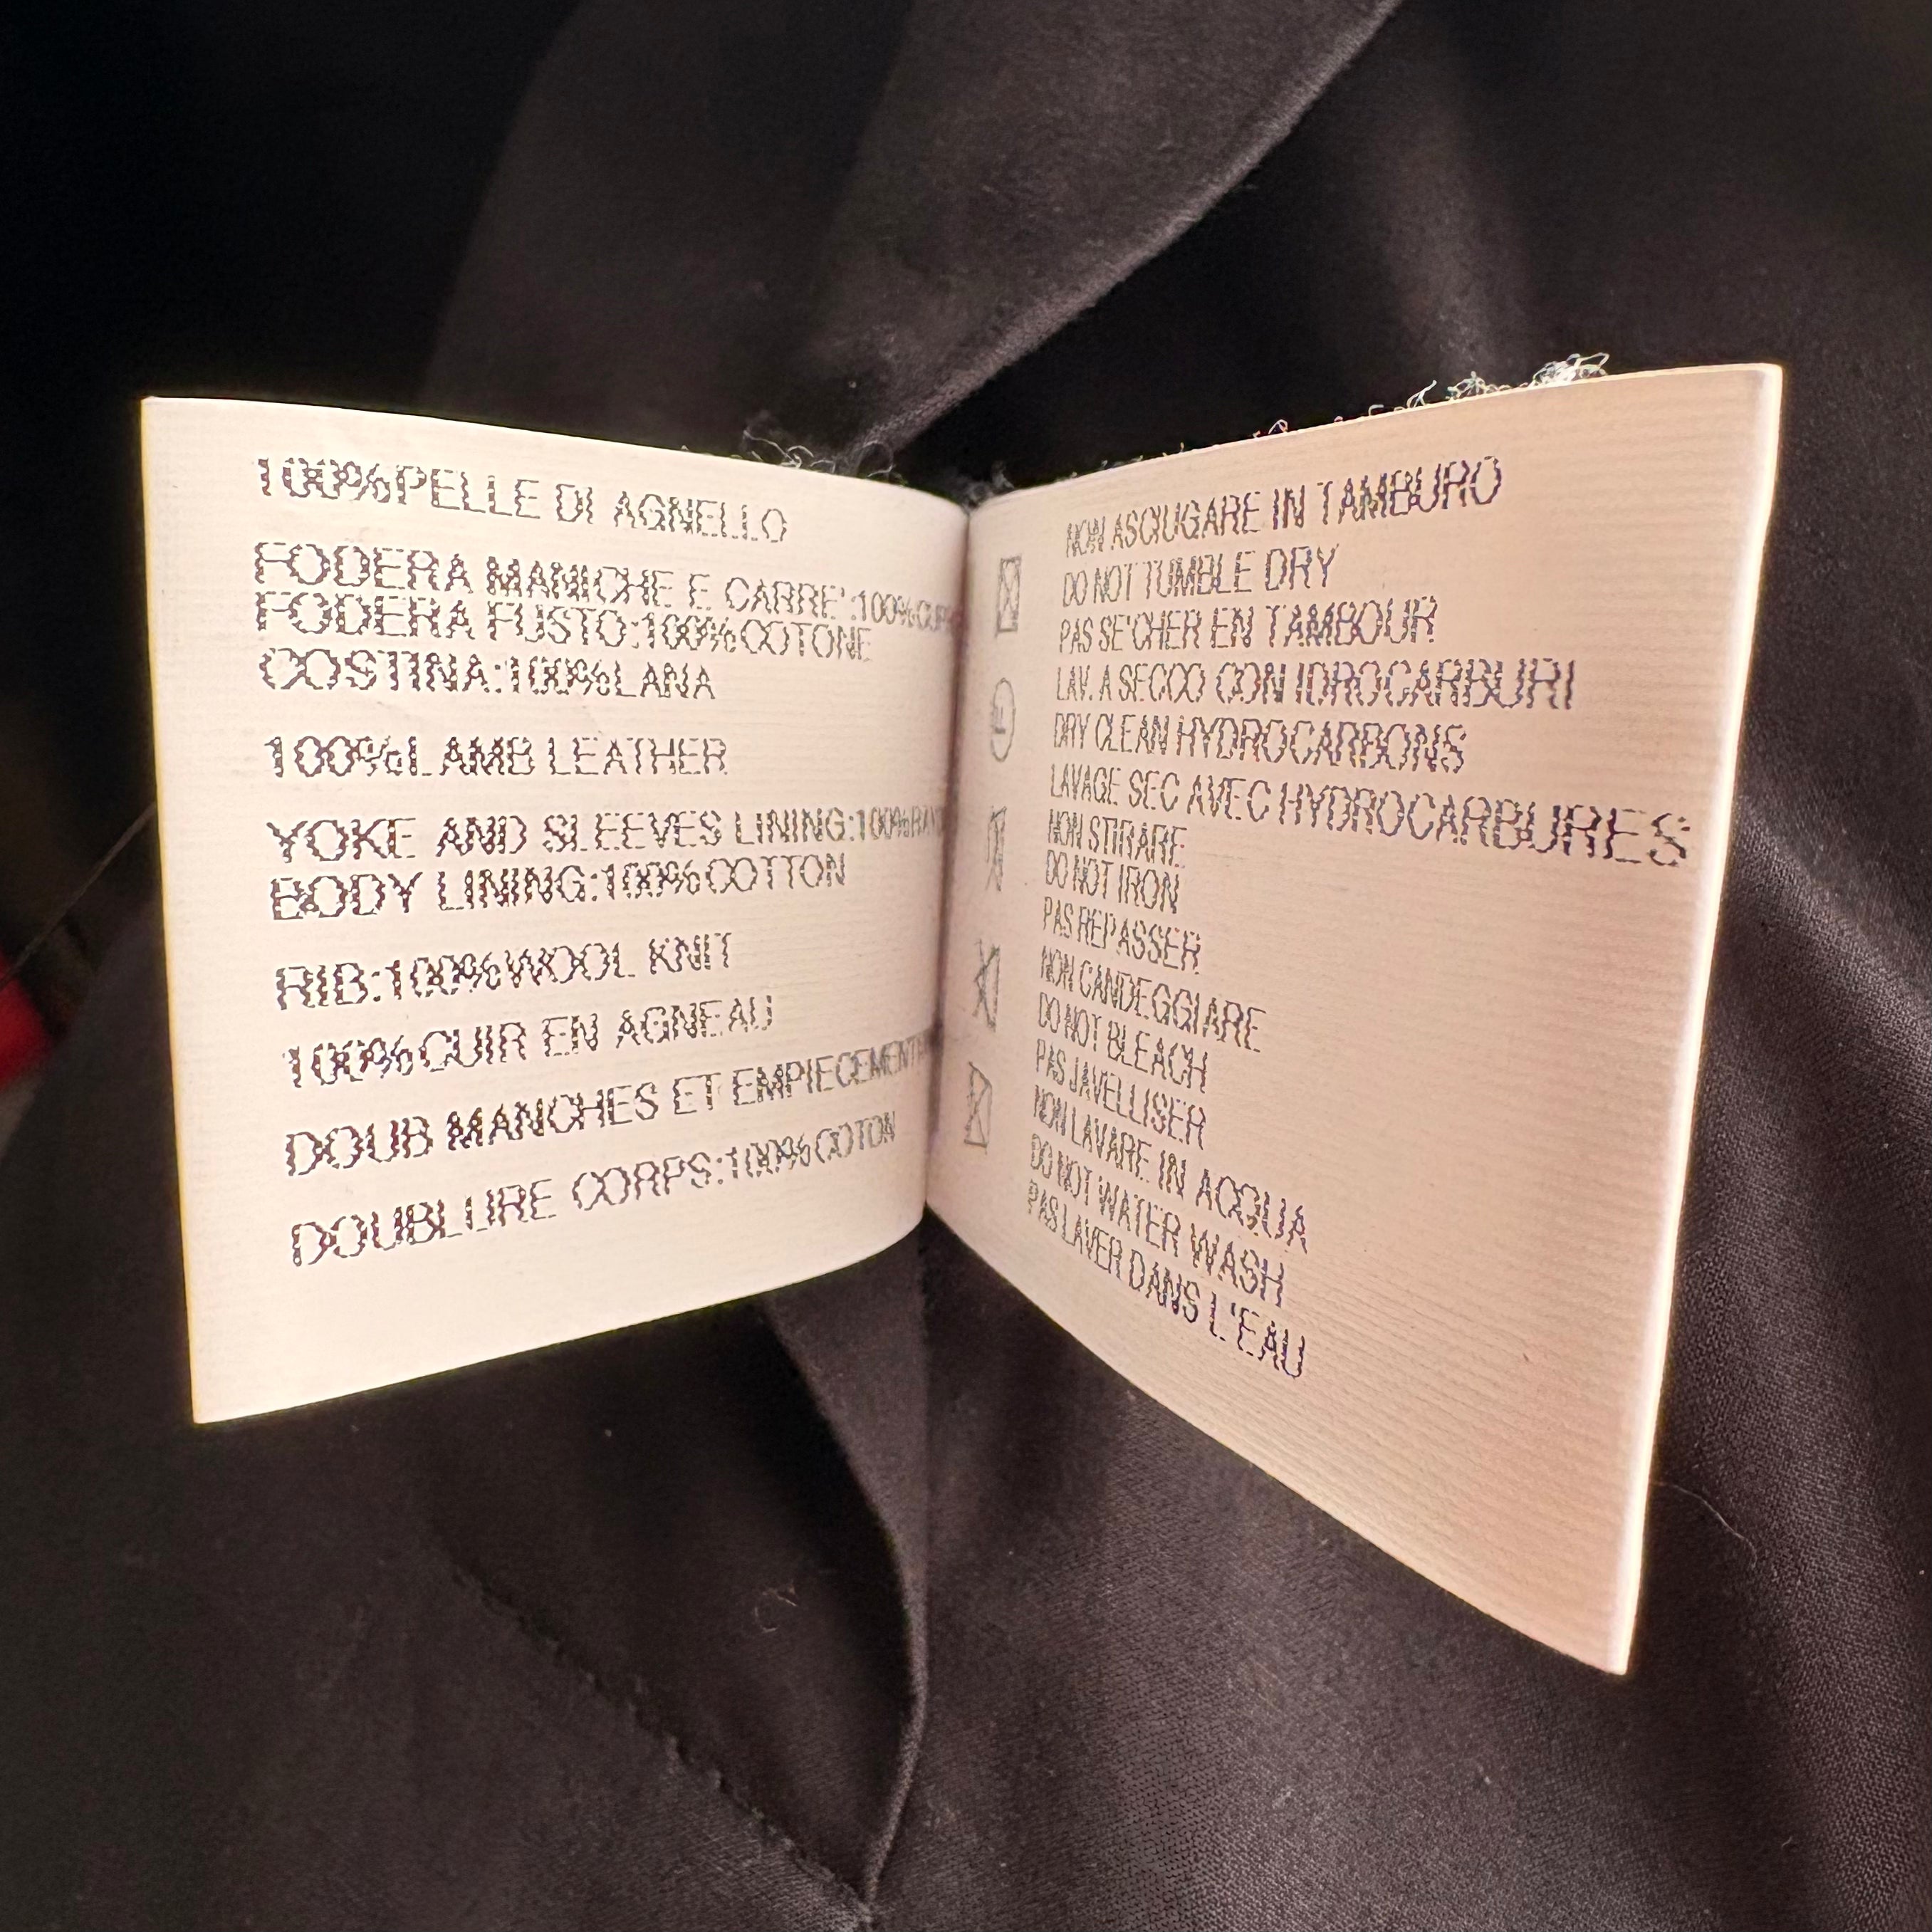 100%PELLE DI AGNELLO
FODERA MANICHE E CARRE':100%
FODERA FUSTO:100%COTONE
COSTINA:100%LANA
100%LAMB LEATHER
YOKE AND SLEEVES LINING:100%
BODY LINING:100%COTTON
RIB:100%WOOL KNIT
100%CUIR EN AGNEAU
DOUB MANCHES ET EMPIECEMENT
DOUBLURE CORPS:100%COTON
NON ASCIUGARE IN TAMBURO
DO NOT TUMBLE DRY
PAS SE'CHER EN TAMBOUR
LAV. A SECCO CON IDROCARBURI
DRY CLEAN HYDROCARBONS
LAVAGE SEC AVEC HYDROCARBURES
NON STIRARE
DO NOT IRON
PAS REPASSER
NON CANDEGGIARE
DO NOT BLEACH
PAS JAVELLISER
NON LAVARE IN ACQUA
DO NOT WATER WASH
PAS LAVER DANS L'EAU